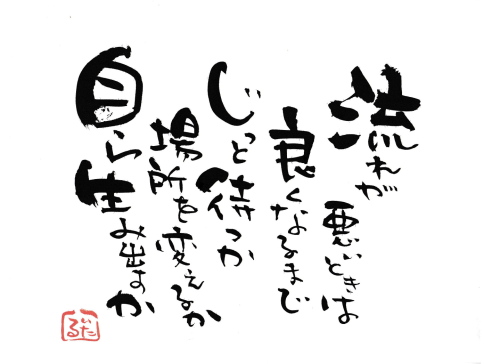 流れが
悪いときは
良くなるまで
じっと待つか
場所を変えるか
自ら
生み出すか